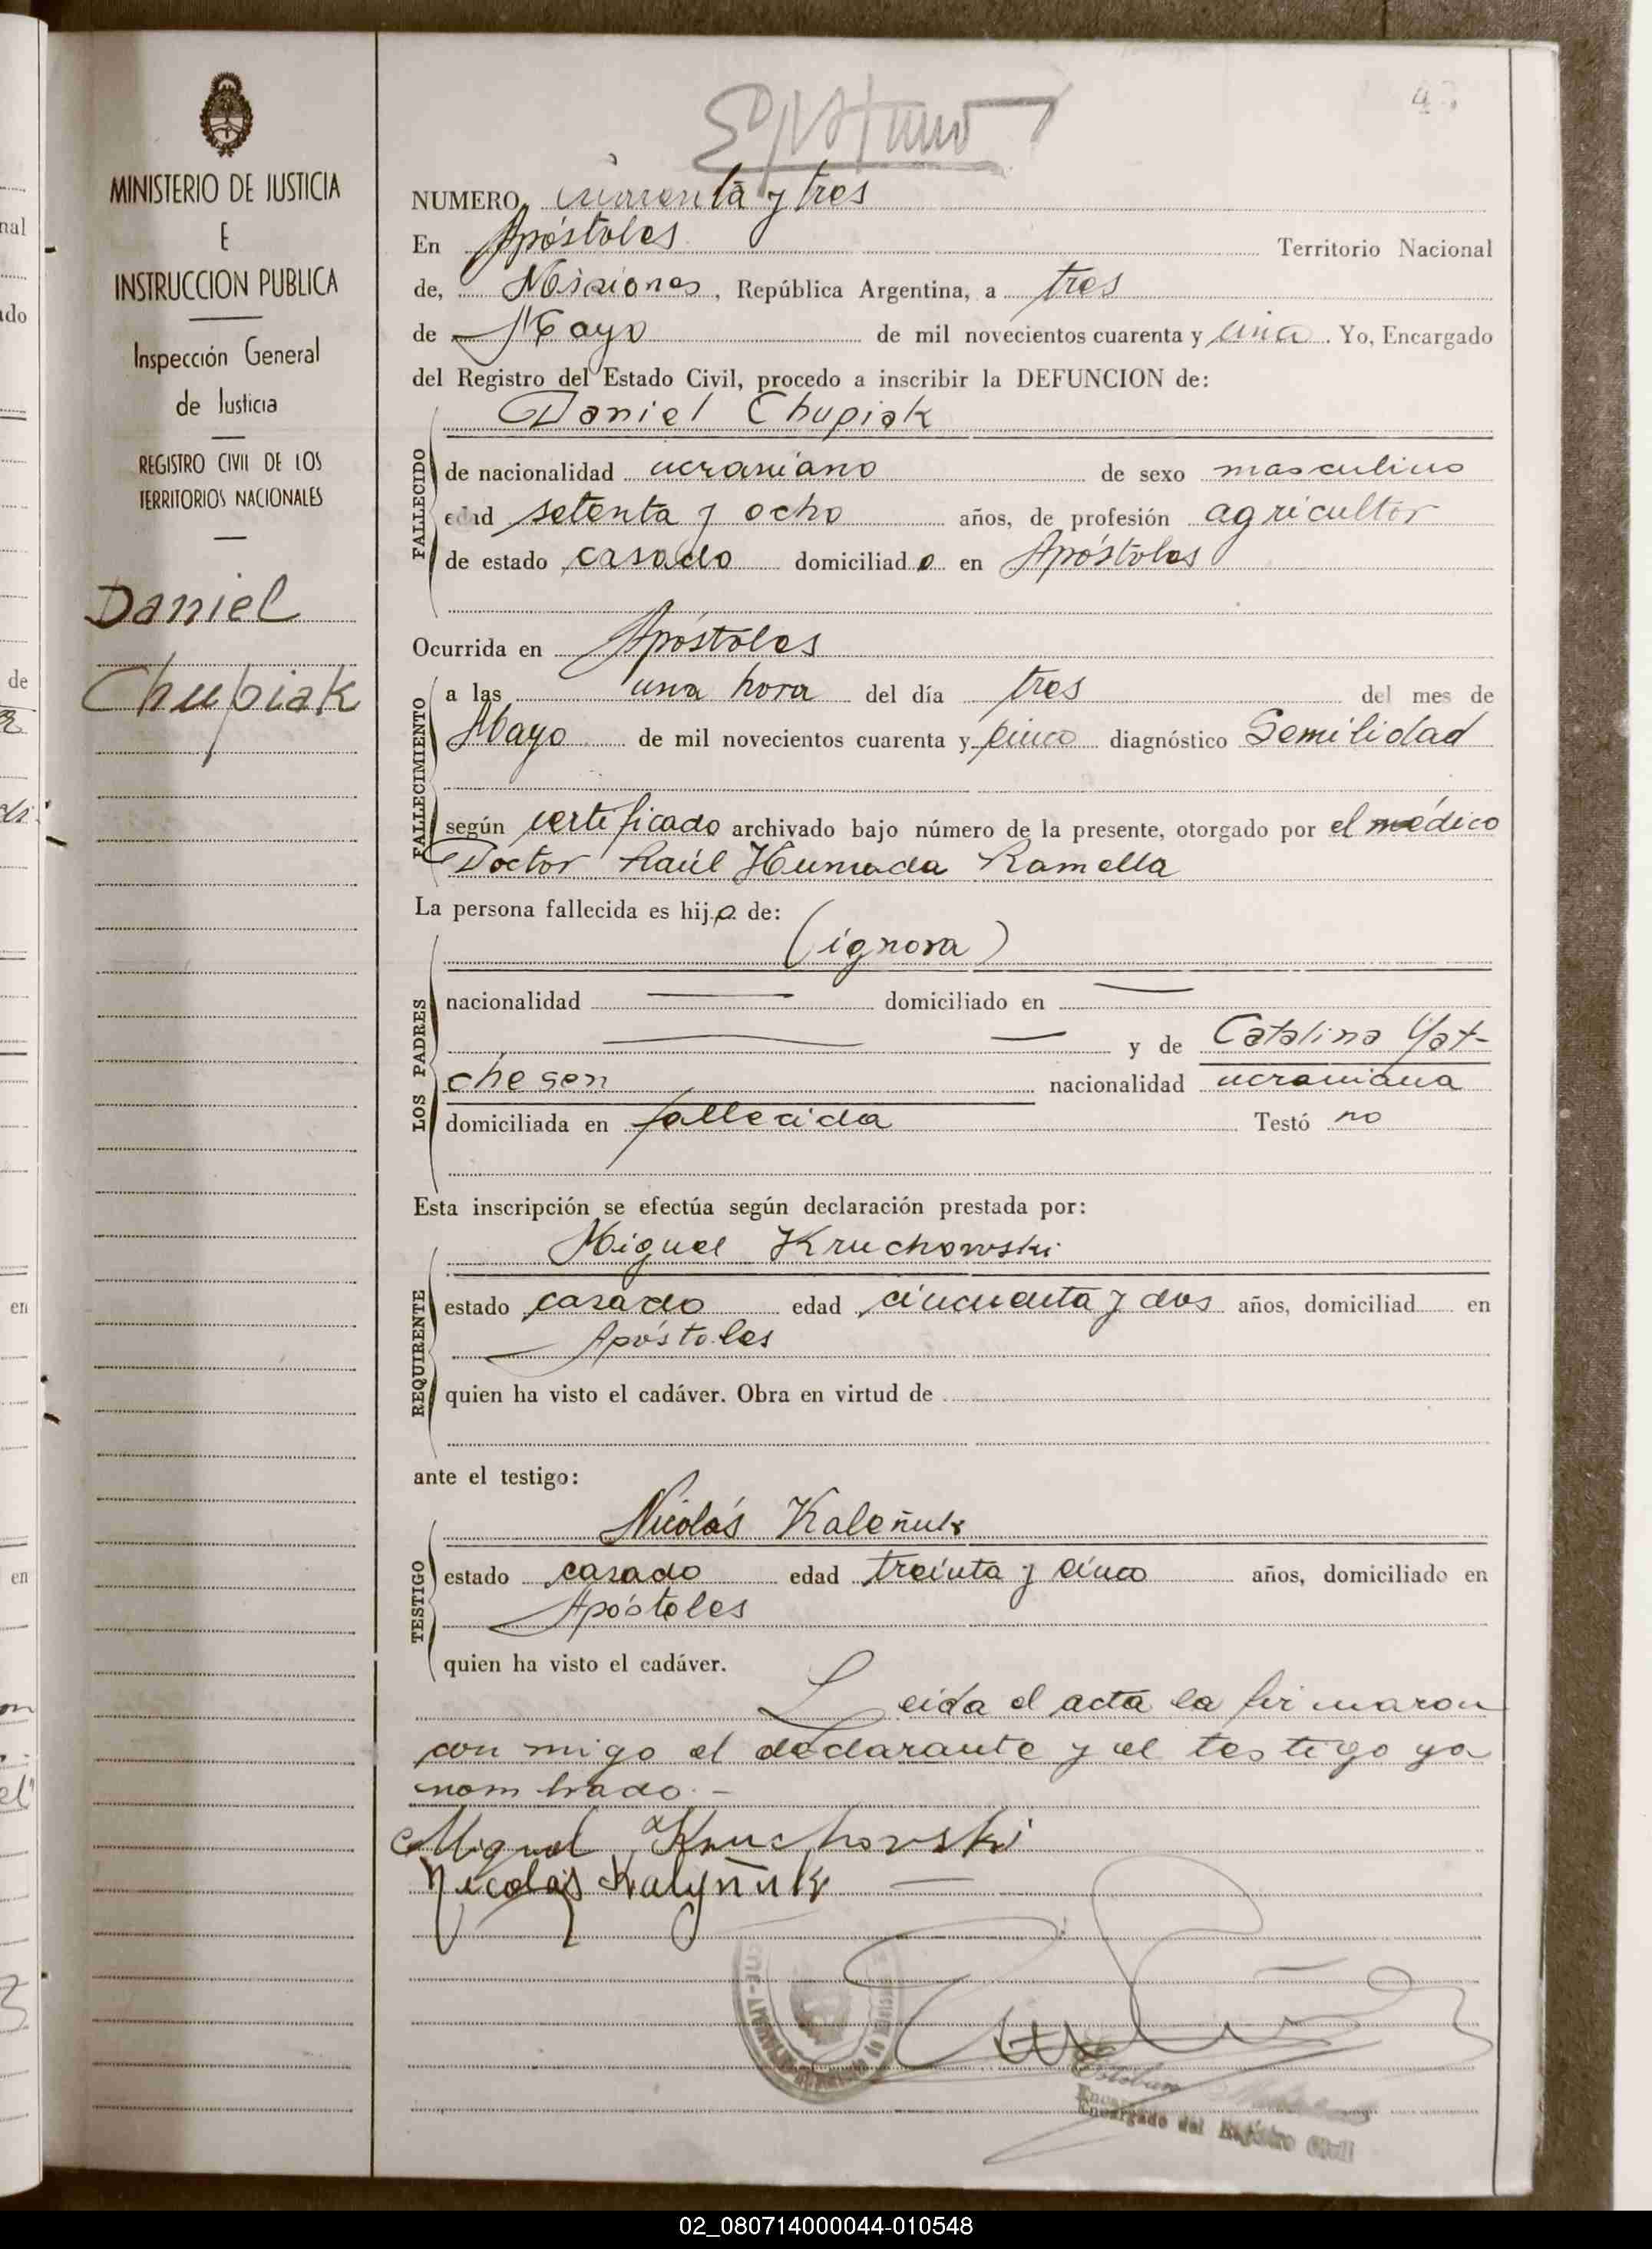 MINISTERIO DE JUSTICIA
E
INSTRUCCION PUBLICA
Inspección General
de Justicia
REGISTRO CIVIL DE LOS
TERRITORIOS NACIONALES
Daniel
Chupiak
NUMERO cuarenta y tres
En Apóstoles Territorio Nacional
de, Misiones, República Argentina, a tres
de Mayo de mil novecientos cuarenta y cinco. Yo, Encargado
del Registro del Estado Civil, procedo a inscribir la DEFUNCION de:
Daniel Chupiak
FALLECIDO
de nacionalidad ucraniano de sexo masculino
edad setenta y ocho años, de profesión agricultor
de estado casado domiciliado en Apóstoles
Ocurrida en Apóstoles
FALLECIMIENTO
a las una hora del día tres del mes de
Mayo de mil novecientos cuarenta y cinco diagnóstico Semilidad
según certificado archivado bajo número de la presente, otorgado por el médico
Doctor Raúl Humada Ramella
La persona fallecida es hijo de:
(ignora)
LOS PADRES
nacionalidad domiciliado en
y de Catalina Yat-
chesen nacionalidad ucraniana
domiciliada en fallecida Testó no
Esta inscripción se efectúa según declaración prestada por:
Miguel Kruchowski
REQUIRENTE
estado casado edad cincuenta y dos años, domiciliad en
Apóstoles
quien ha visto el cadáver. Obra en virtud de
ante el testigo:
Nicolás Kaleñuk
TESTIGO
estado casado edad treinta y cinco años, domiciliado en
Apóstoles
quien ha visto el cadáver.
Leida el acta la firmaron
con migo el declarante y el testigo ya
nombrado.-
Miguel Kruchowski
Nicolás Kalyñuk
Encargado del Registro Civil
02_080714000044-010548